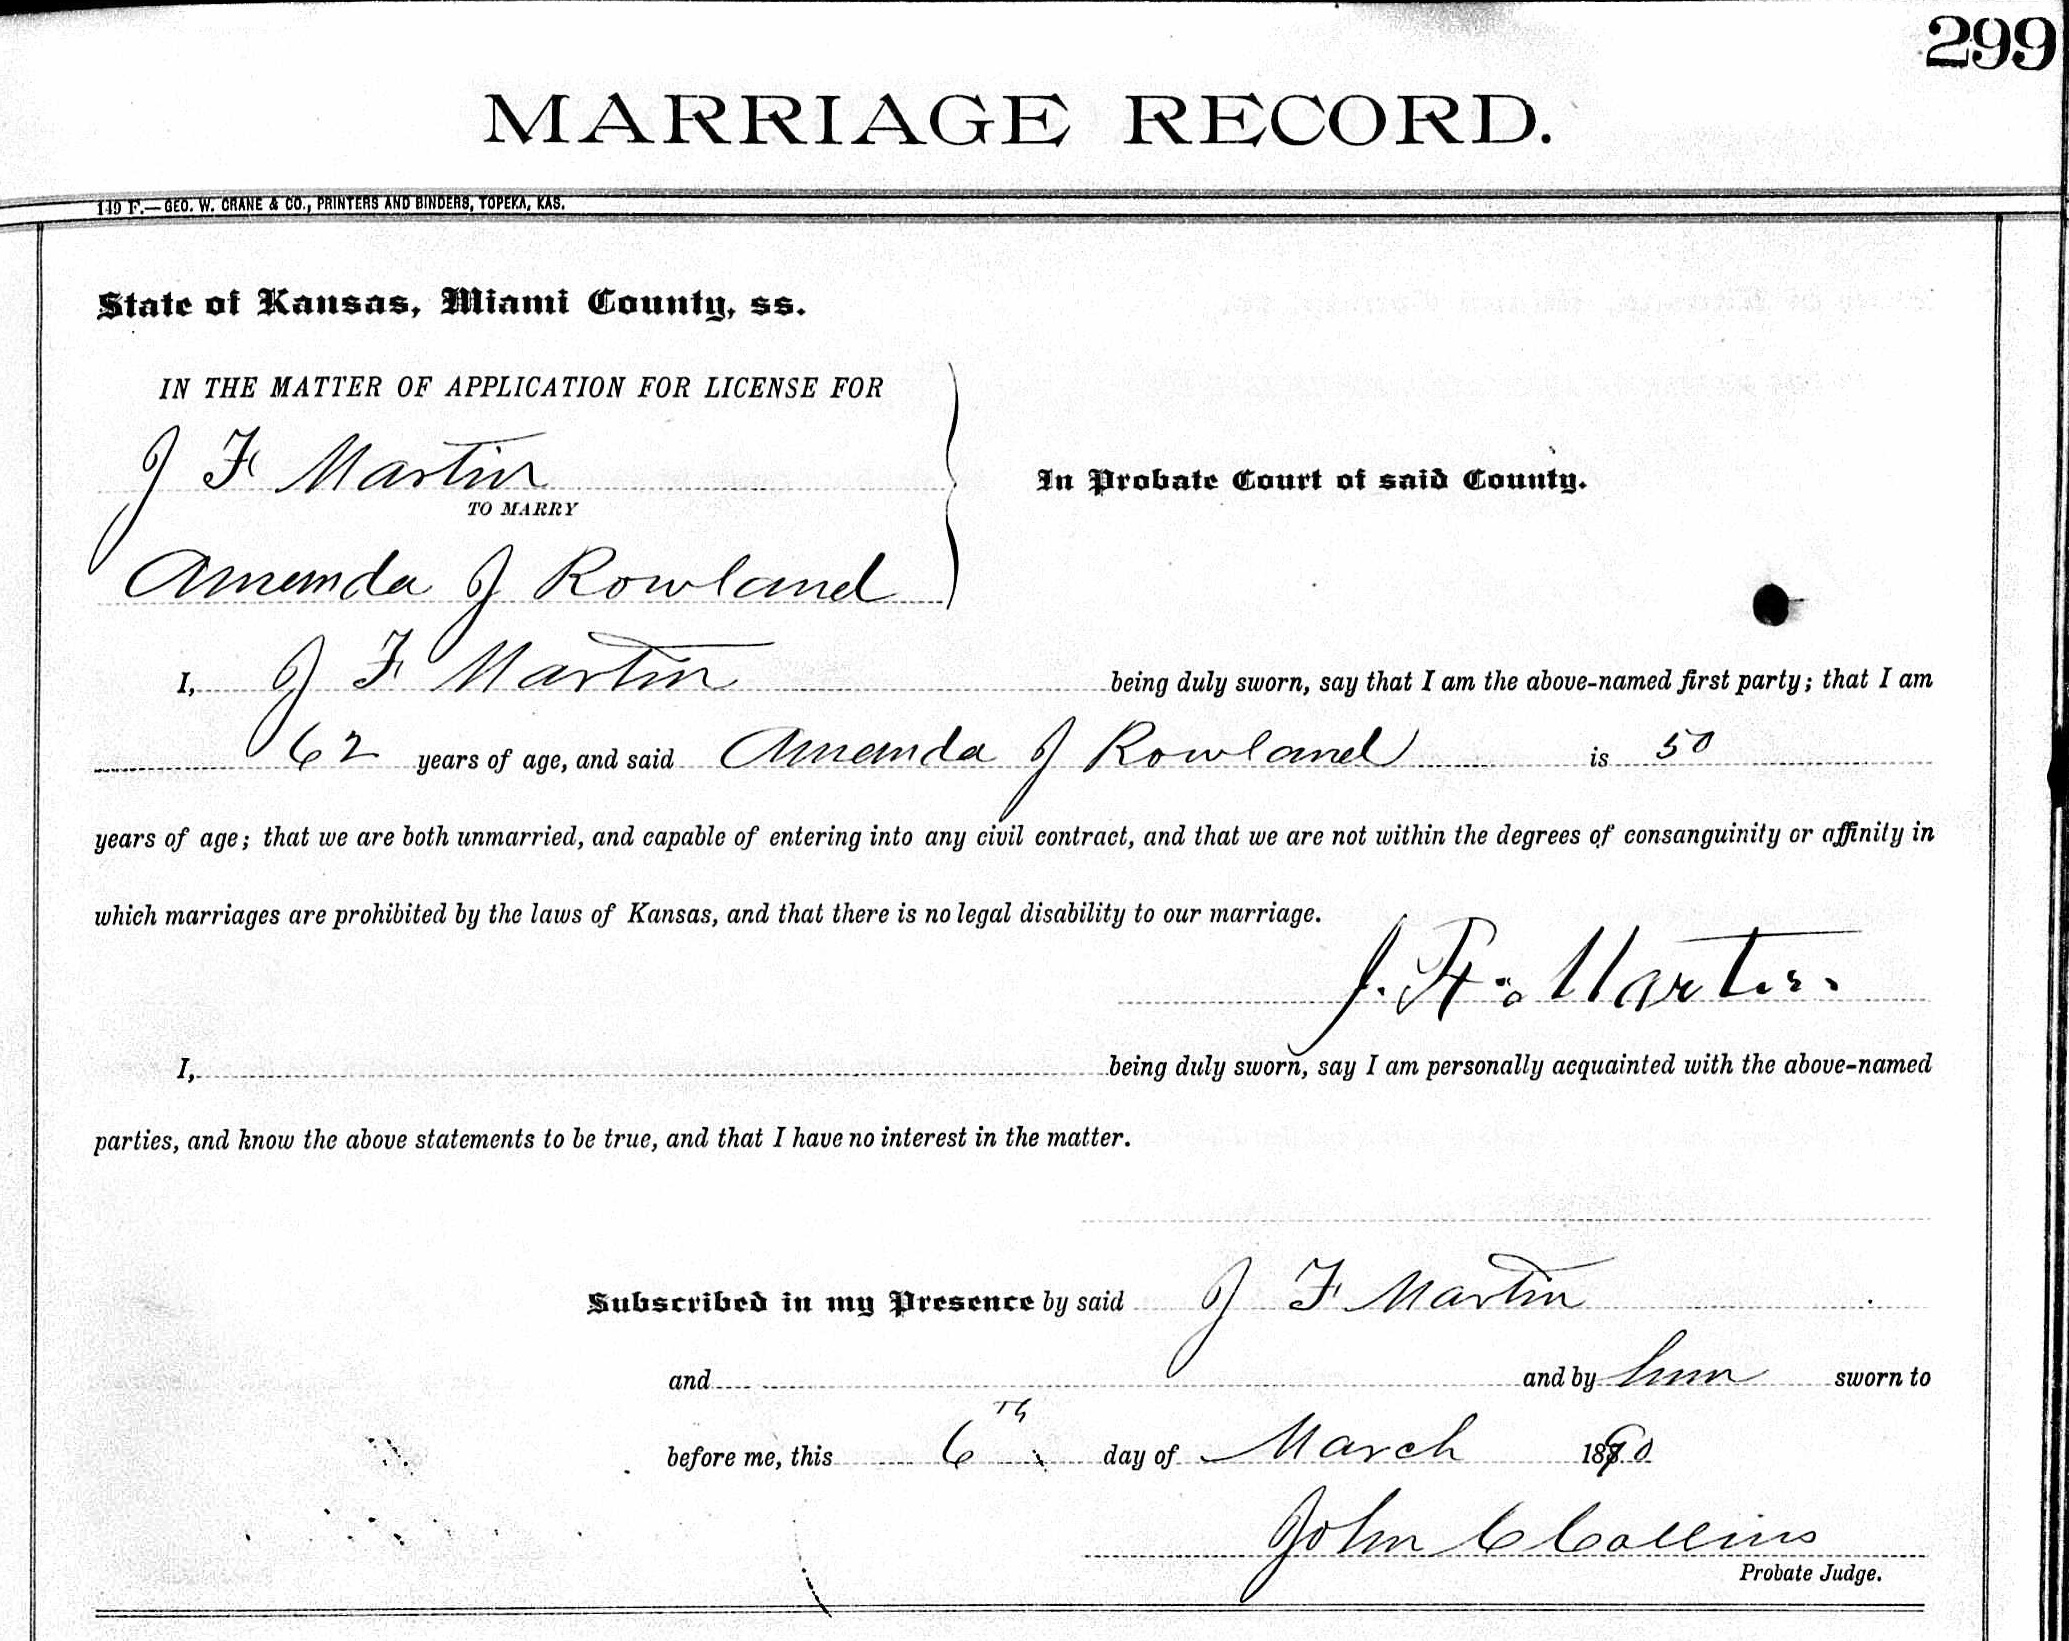 299
MARRIAGE RECORD.
149 F.—GEO. W. CRANE & CO., PRINTERS AND BINDERS, TOPEKA, KAS.
State of Kansas, Miami County, ss.
IN THE MATTER OF APPLICATION FOR LICENSE FOR
J F Martin
TO MARRY
In Probate Court of said County.
Amanda J Rowland
I, J F Martin being duly sworn, say that I am the above-named first party; that I am
62 years of age, and said Amanda J Rowland is 50
years of age; that we are both unmarried, and capable of entering into any civil contract, and that we are not within the degrees of consanguinity or affinity in
which marriages are prohibited by the laws of Kansas, and that there is no legal disability to our marriage.
J. F. Martin
I, being duly sworn, say I am personally acquainted with the above-named
parties, and know the above statements to be true, and that I have no interest in the matter.
Subscribed in my Presence by said J F Martin
and and by him sworn to
before me, this 6th day of March 1890
John C Collins
Probate Judge.